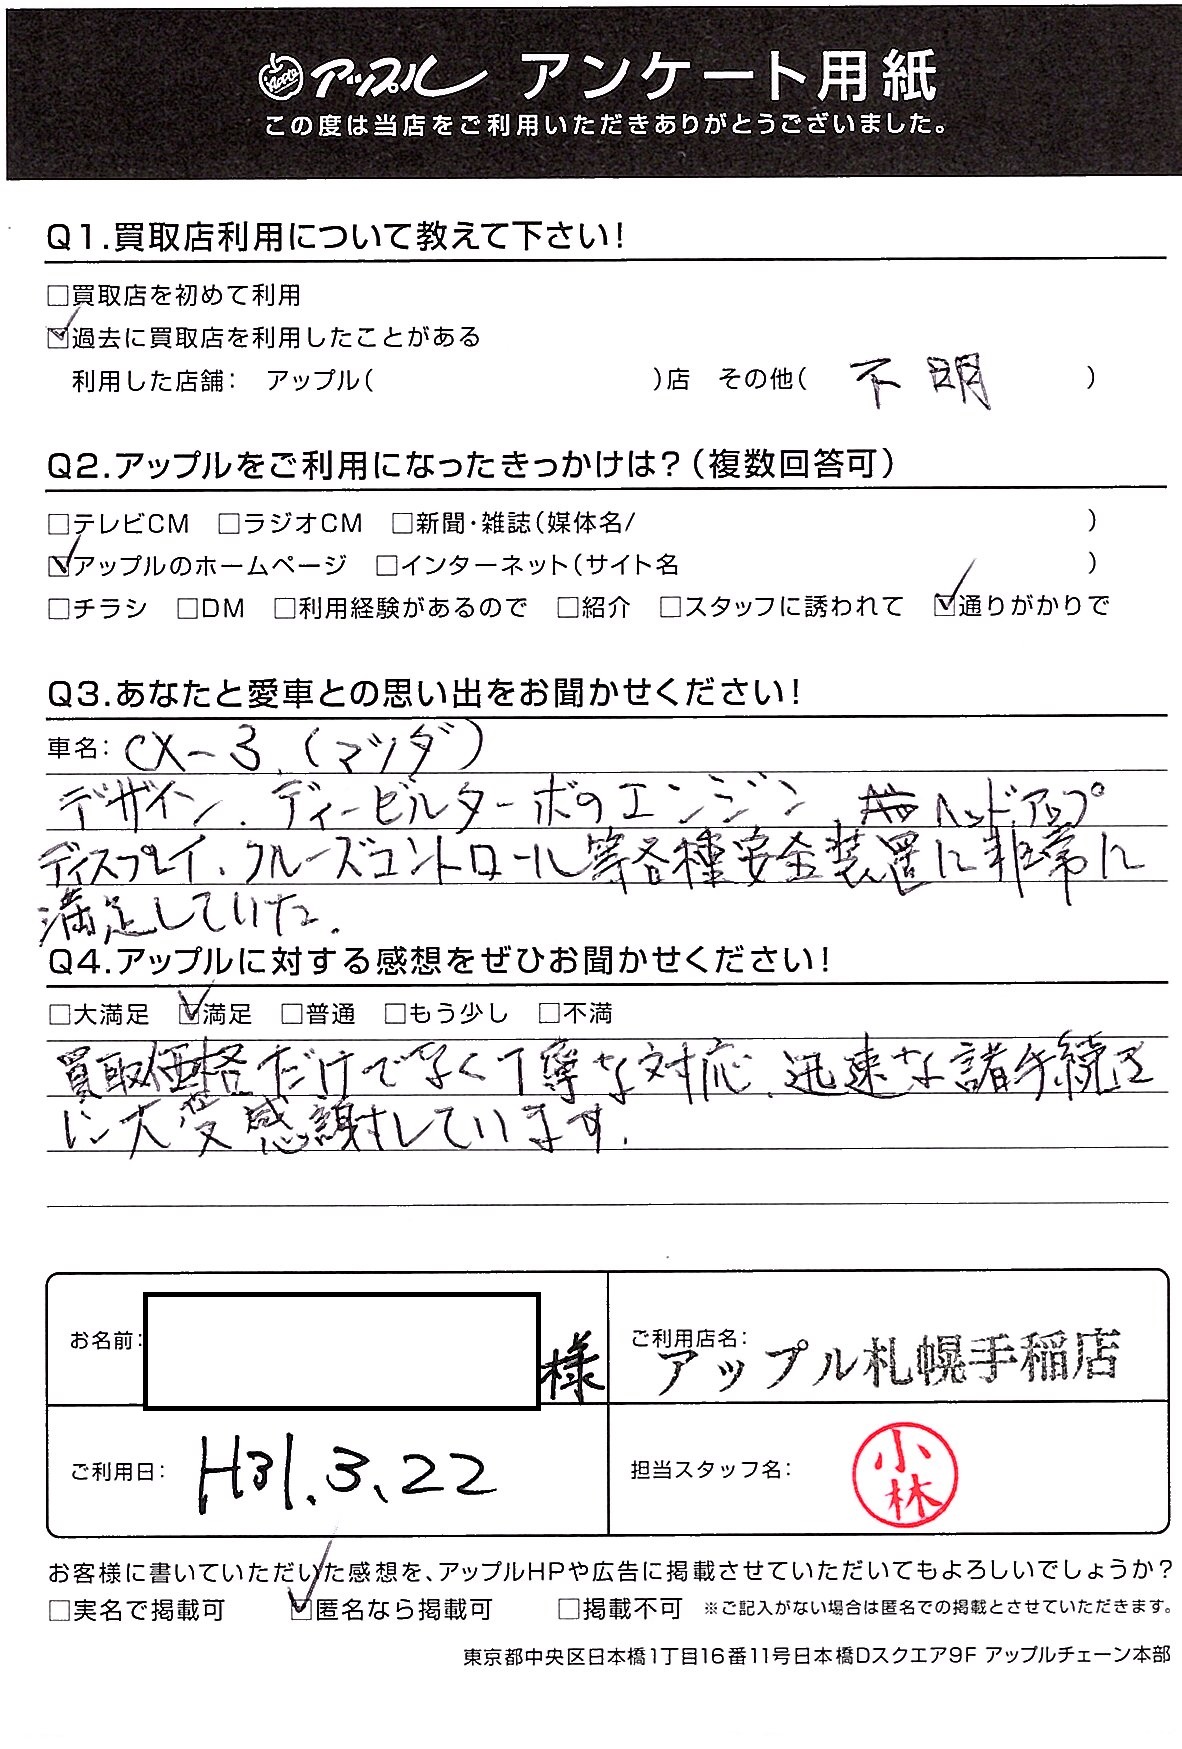 Apple アップル アンケート用紙
この度は当店をご利用いただきありがとうございました。
Q1.買取店利用について教えて下さい!
□買取店を初めて利用
☑過去に買取店を利用したことがある
利用した店舗: アップル( )店 その他( 不明 )
Q2.アップルをご利用になったきっかけは?(複数回答可)
□テレビCM □ラジオCM □新聞・雑誌(媒体名/ )
☑アップルのホームページ □インターネット(サイト名 )
□チラシ □DM □利用経験があるので □紹介 □スタッフに誘われて ☑通りがかりで
Q3.あなたと愛車との思い出をお聞かせください!
車名: CX-3.(マツダ)
デザイン.ディーゼルターボのエンジン.ヘッドアップ
ディスプレイ.クルーズコントロール等各種安全装置に非常に
満足していた.
Q4.アップルに対する感想をぜひお聞かせください!
□大満足 ☑満足 □普通 □もう少し □不満
買取価格だけでなく丁寧な対応.迅速な諸手続き
に大変感謝しています.
お名前: 様
ご利用店名: アップル札幌手稲店
ご利用日: H31.3.22
担当スタッフ名: 小林
お客様に書いていただいた感想を、アップルHPや広告に掲載させていただいてもよろしいでしょうか?
□実名で掲載可 ☑匿名なら掲載可 □掲載不可 ※ご記入がない場合は匿名での掲載とさせていただきます。
東京都中央区日本橋1丁目16番11号日本橋Dスクエア9F アップルチェーン本部